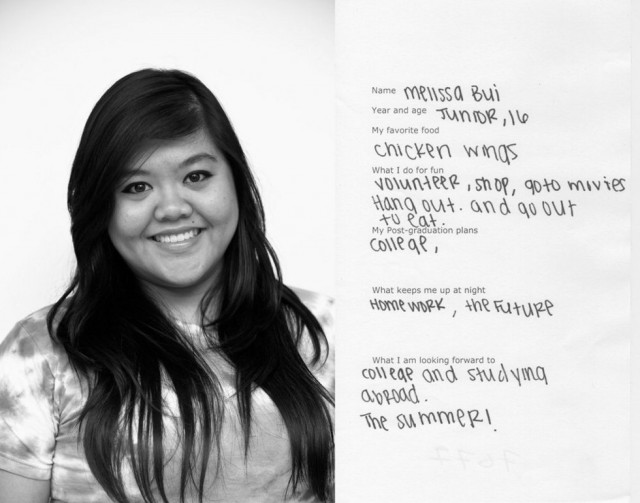 Name Melissa Bui
Year and age Junior, 16
My favorite food
chicken wings
What I do for fun
volunteer, shop, goto movies
Hang out. and go out
to eat.
My Post-graduation plans
college,
What keeps me up at night
Homework, the Future
What I am looking forward to
college and studying
abroad.
The summer!